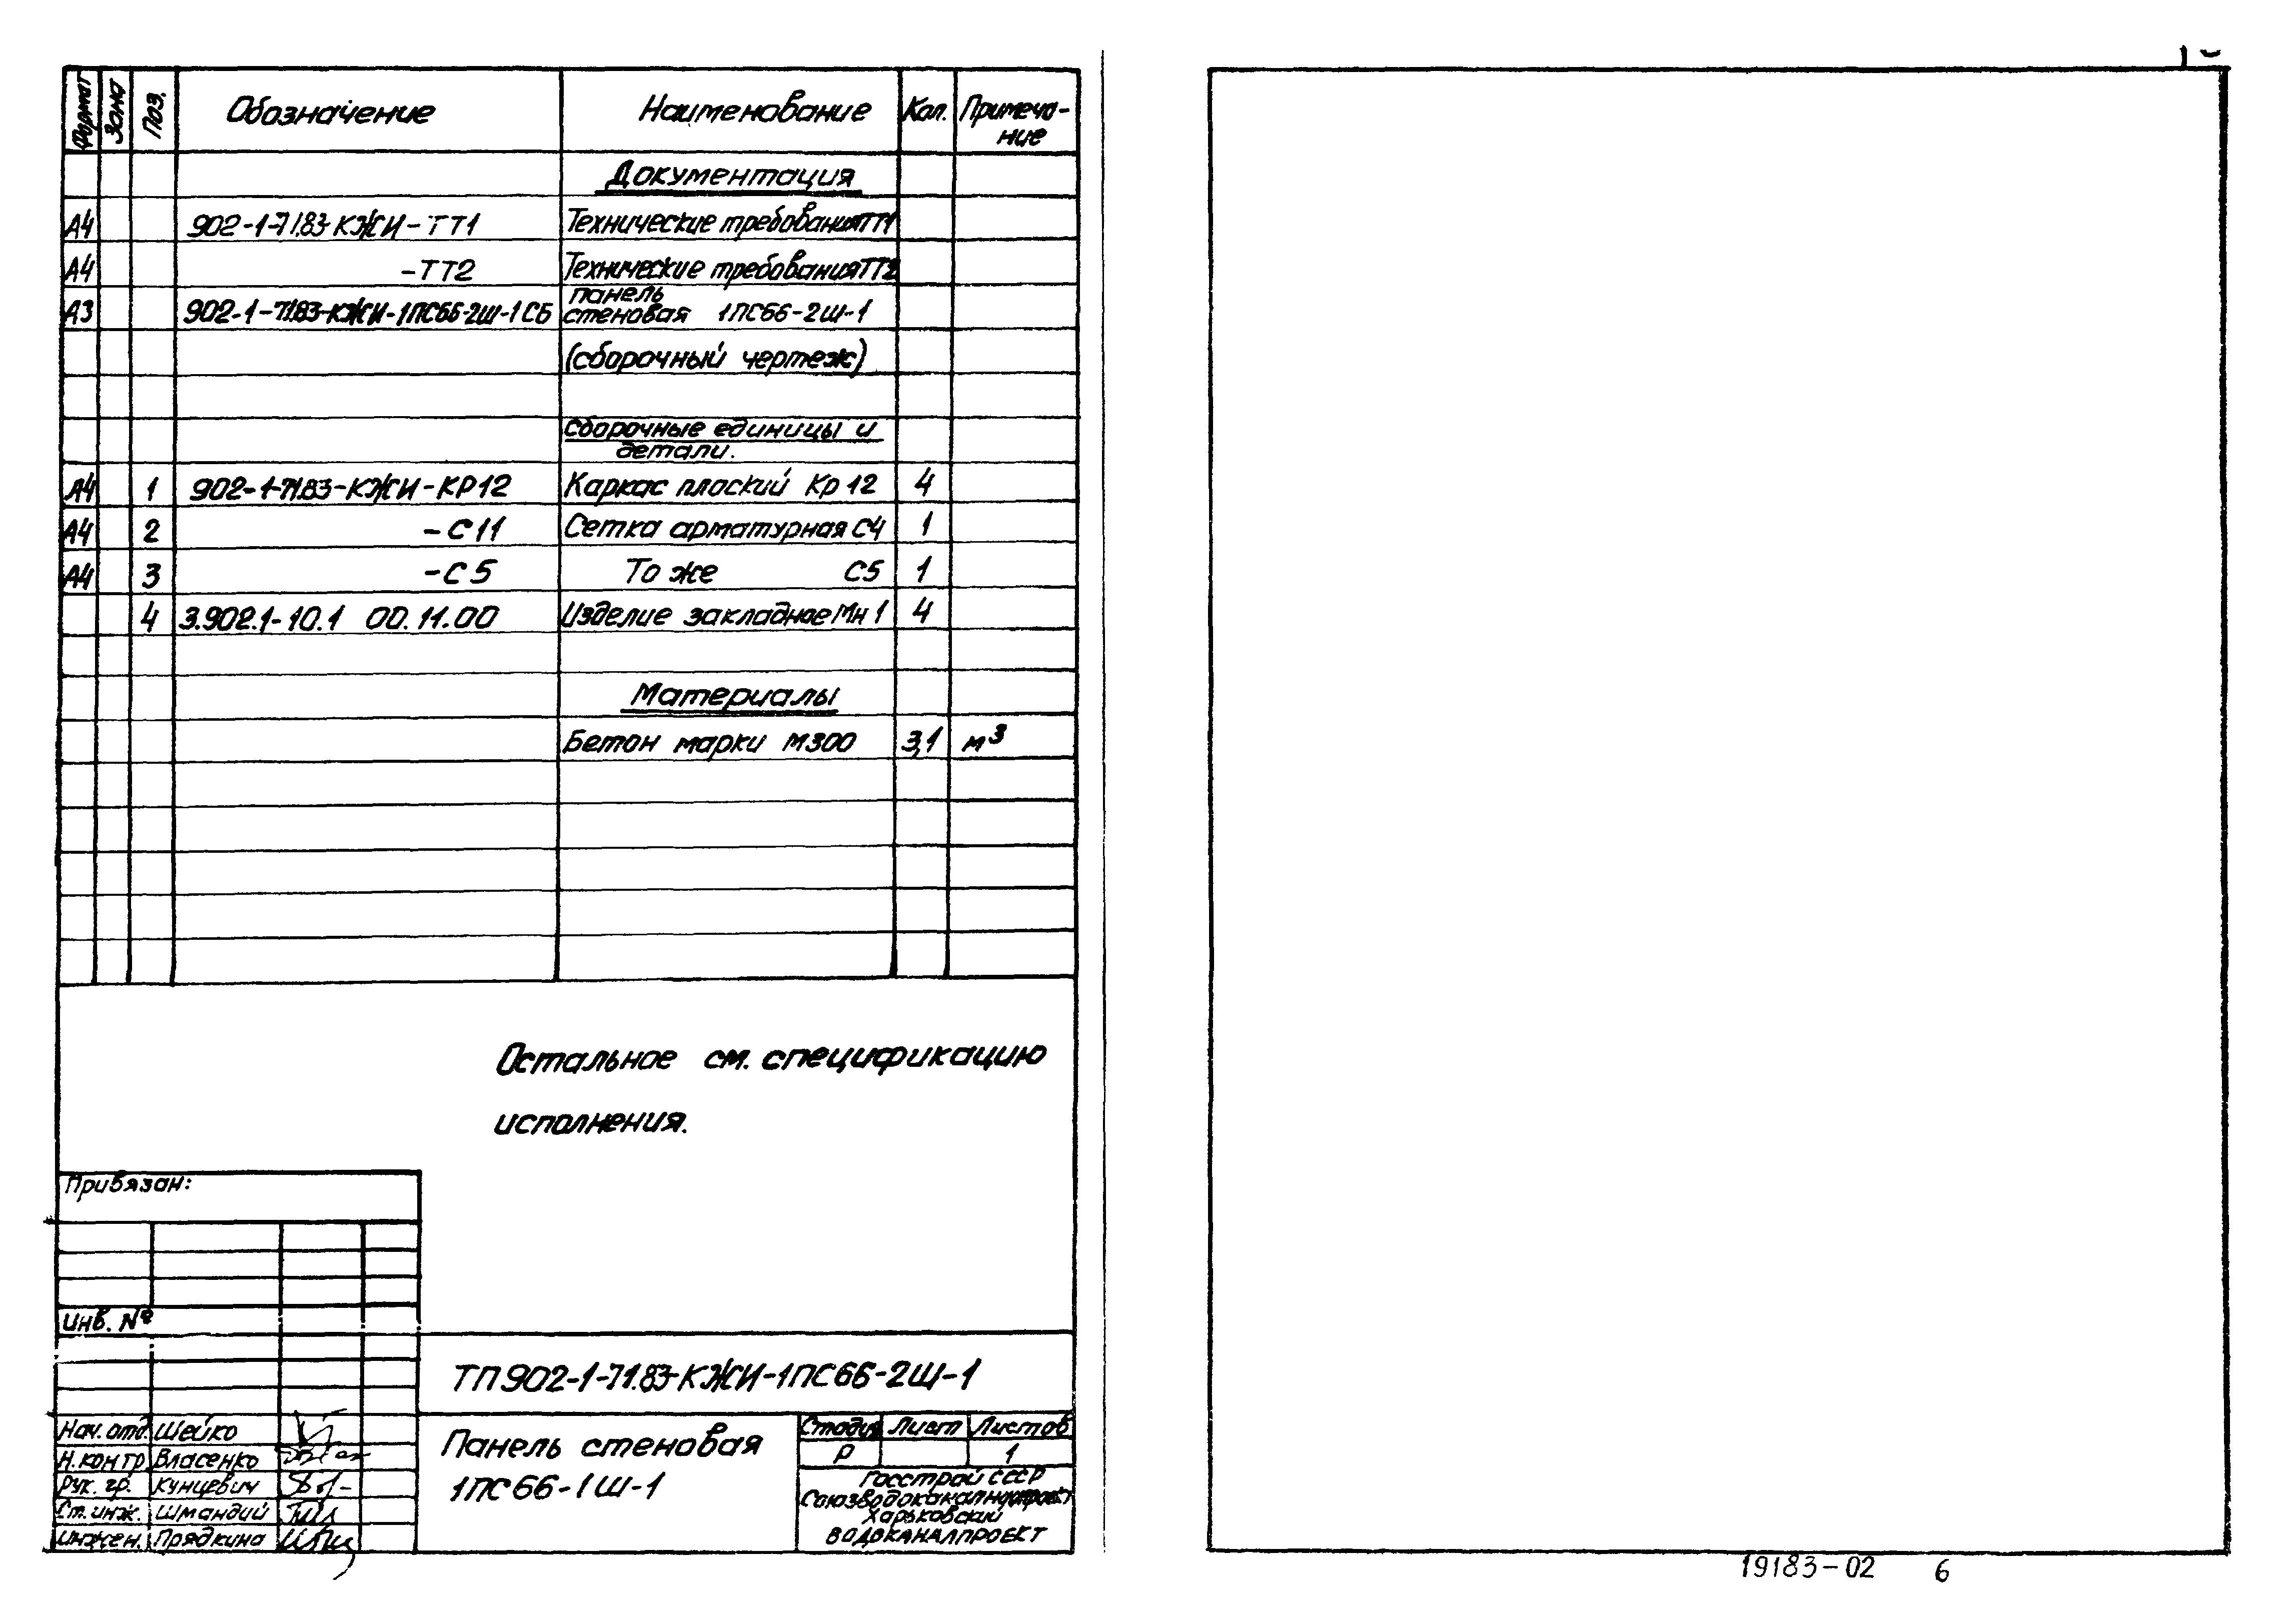 Формат Зона Поз. Обозначение Наименование Кол. Примеча-
ние
Документация
А4 902-1-71.83-КЖИ-ТТ1 Технические требования ТТ1
А4 -ТТ2 Технические требования ТТ2
панель
А3 902-1-71.83-КЖИ-1ПС66-2Ш-1СБ стеновая 1ПС66-2Ш-1
(сборочный чертеж)
сборочные единицы и
детали.
А4 1 902-1-71.83-КЖИ-КР12 Каркас плоский Кр12 4
А4 2 -С11 Сетка арматурная С4 1
А4 3 -С5 То же С5 1
4 3.902.1-10.1 00.11.00 Изделие закладное Мн1 4
Материалы
Бетон марки М300 3,1 м³
Остальное см. спецификацию
исполнения.
Привязан:
Инв. №
ТП902-1-71.83-КЖИ-1ПС66-2Ш-1
Нач. отд. Шейко
Н. контр. Власенко
Рук. гр. Кунцевич
Ст. инж. Шмандий
Инжен. Прядкина
Панель стеновая
1ПС66-1Ш-1
Стадия Лист Листов
Р 1
Госстрой СССР
Союзводоканалниипроект
Харьковский
ВОДОКАНАЛПРОЕКТ
19183-02 6